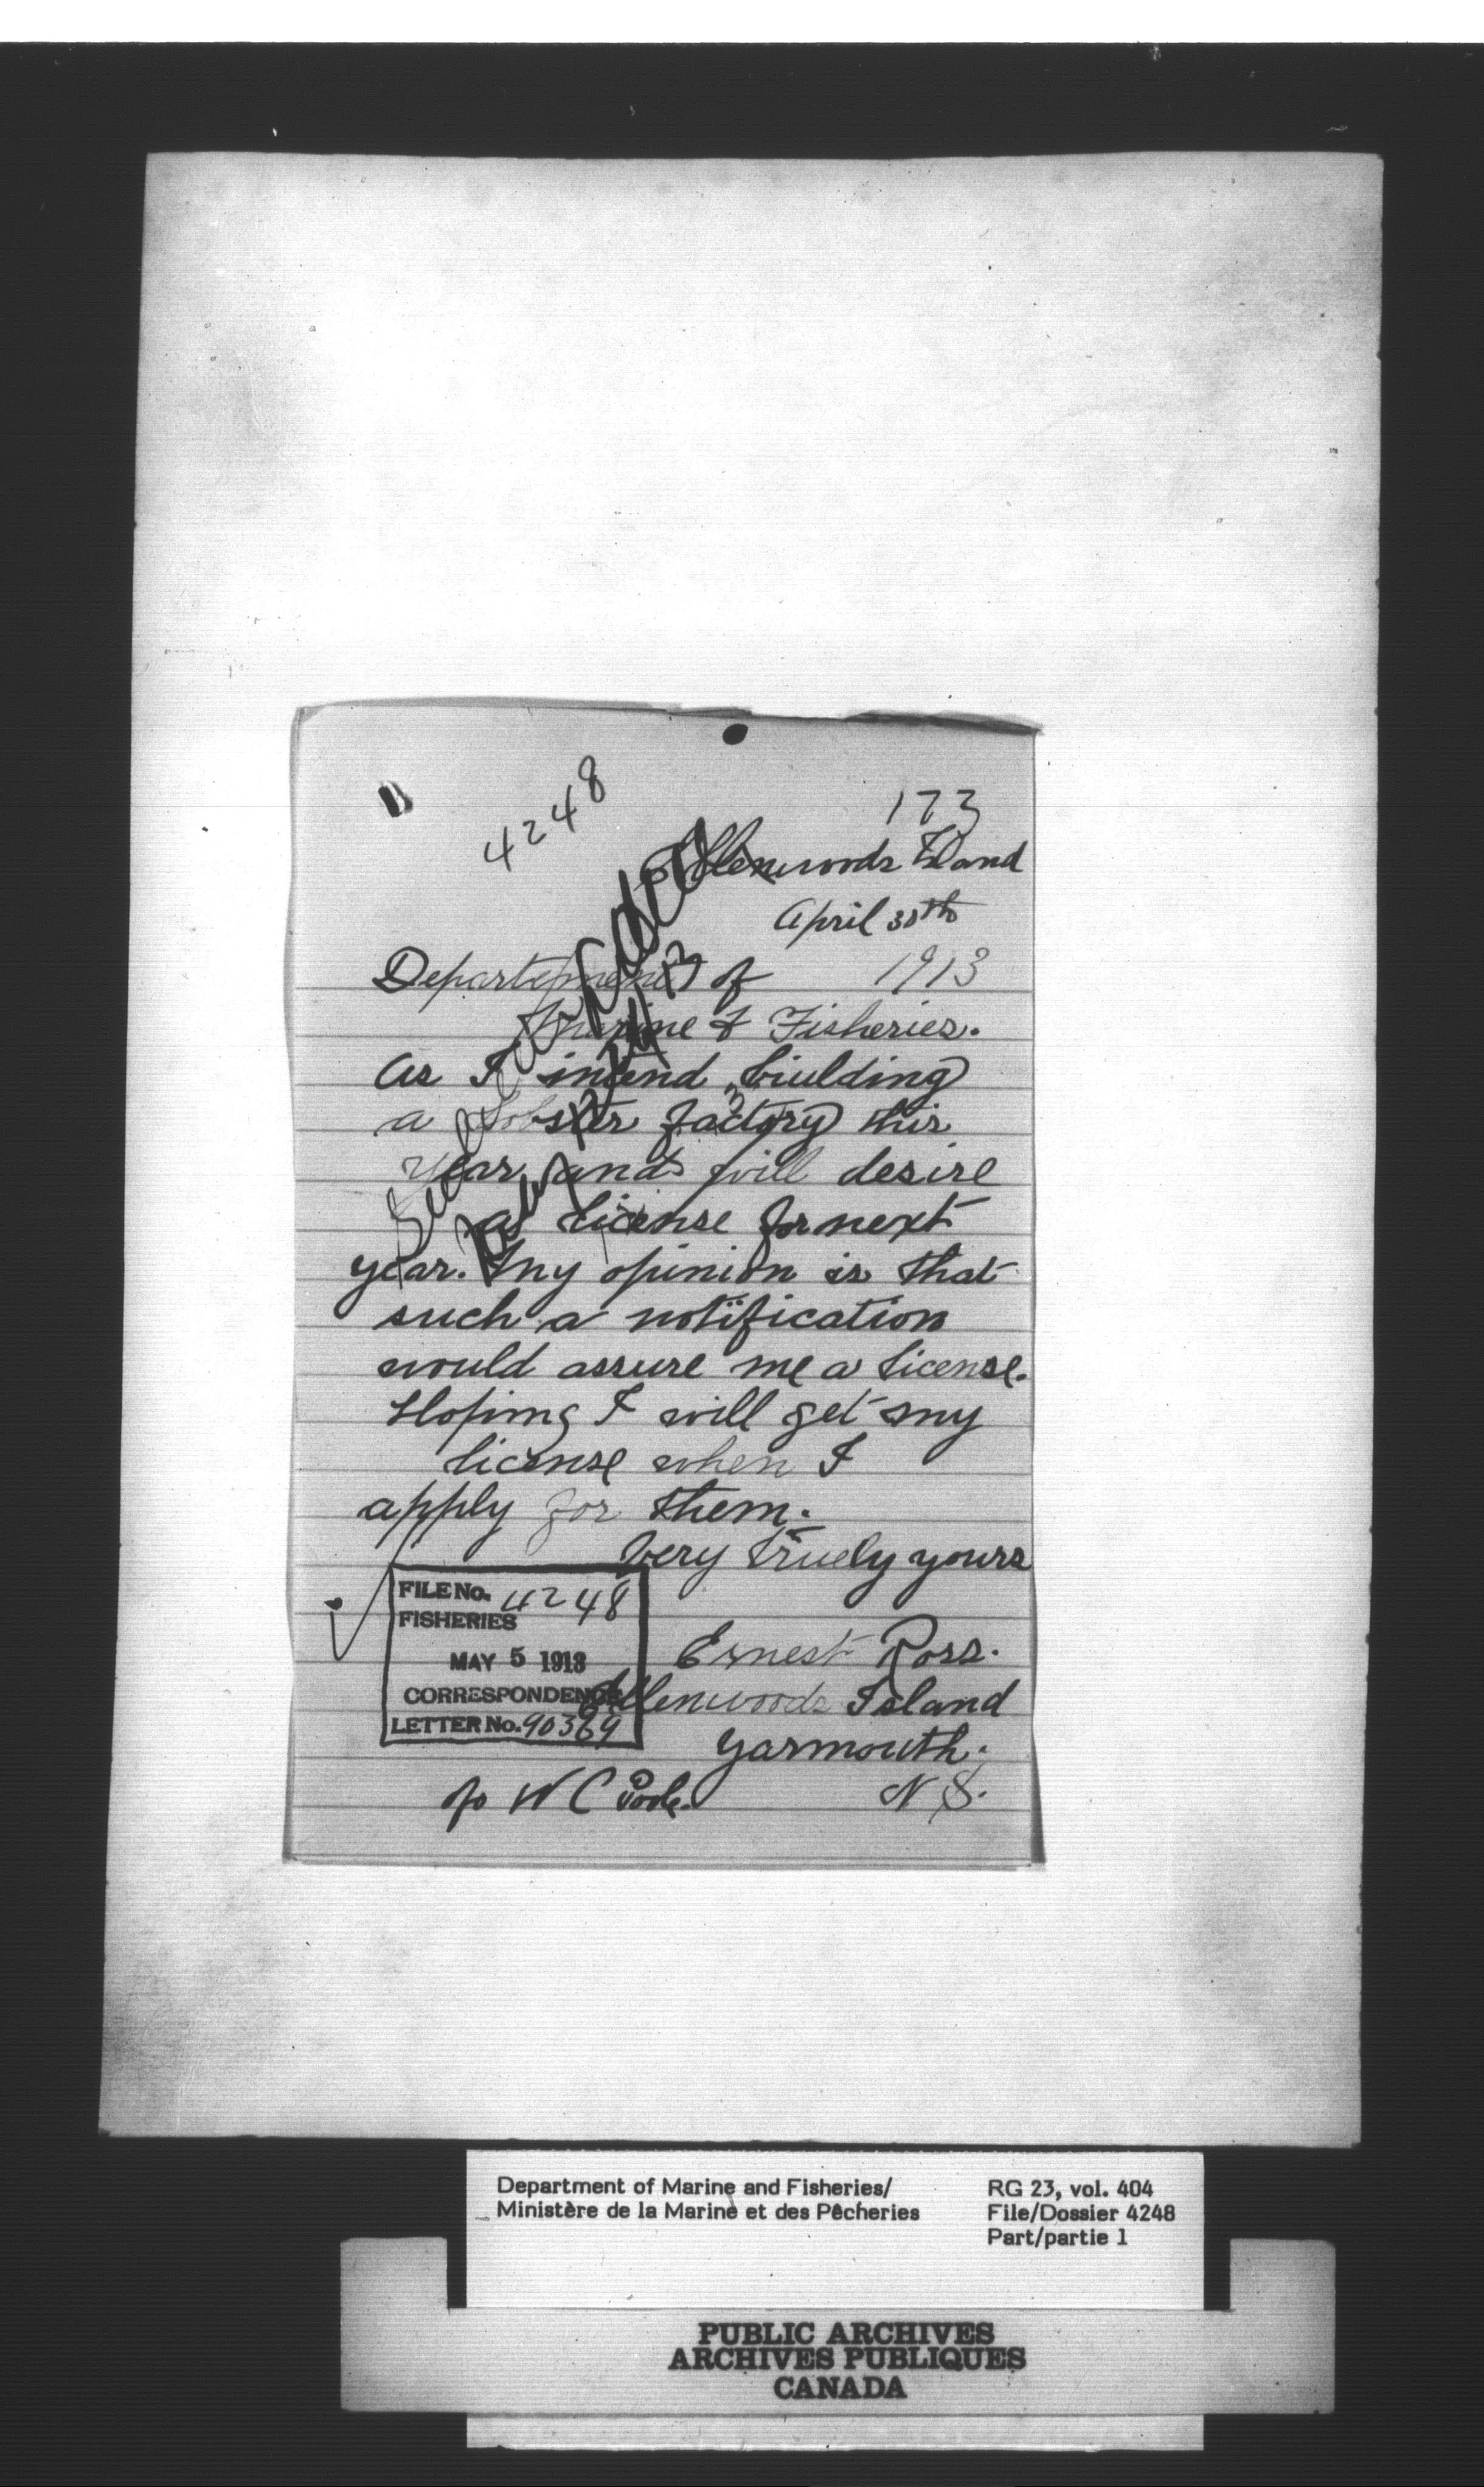 4248
173
Ellenwoods Island
April 30th
1913
Departement of
Marine & Fisheries.
As I intend biulding
a Lobster factory this
year and will desire
a license for next
year. My opinion is that
such a notification
would assure me a license.
Hoping I will get my
license when I
apply for them.
Very truely yours
Ernest Ross.
Ellenwoods Island
Yarmouth.
N S.
c/o W C Poole.
FILE No. 4248
FISHERIES
MAY 5 1913
CORRESPONDENCE
LETTER No. 90369
Department of Marine and Fisheries/
Ministère de la Marine et des Pêcheries
RG 23, vol. 404
File/Dossier 4248
Part/partie 1
PUBLIC ARCHIVES
ARCHIVES PUBLIQUES
CANADA